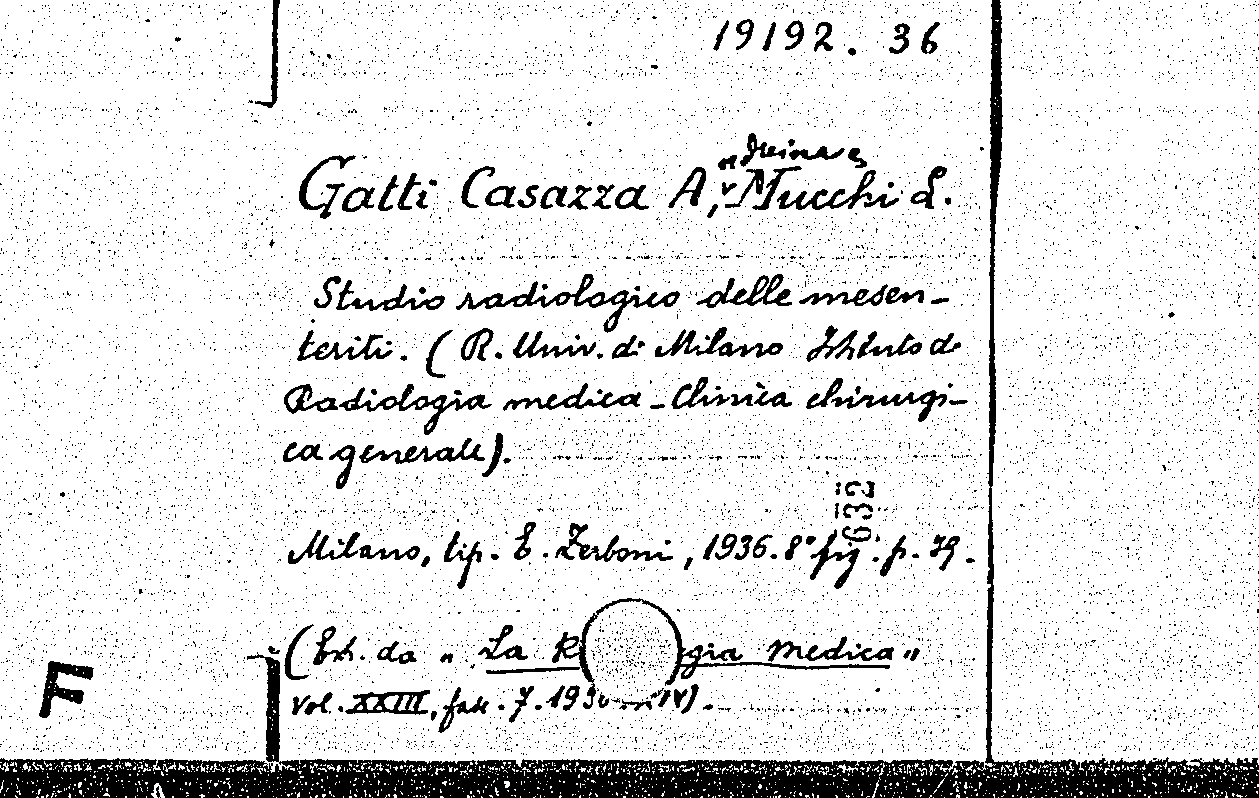 19192. 36
Gatti Casazza A, Mucchi L.
Studio radiologico delle mesen-
teriti. (R. Univ. di Milano Istituto di
Radiologia medica - Clinica chirurgi-
ca generale).
632
Milano, tip. E. Zerboni, 1936. 8° fig. p. 79.
(Estr. da "La R gia medica"
Vol. XXIII, fasc. 7. 193 XIV).
F